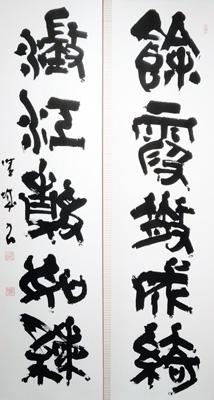 餘霞散成綺
澂江靜如練